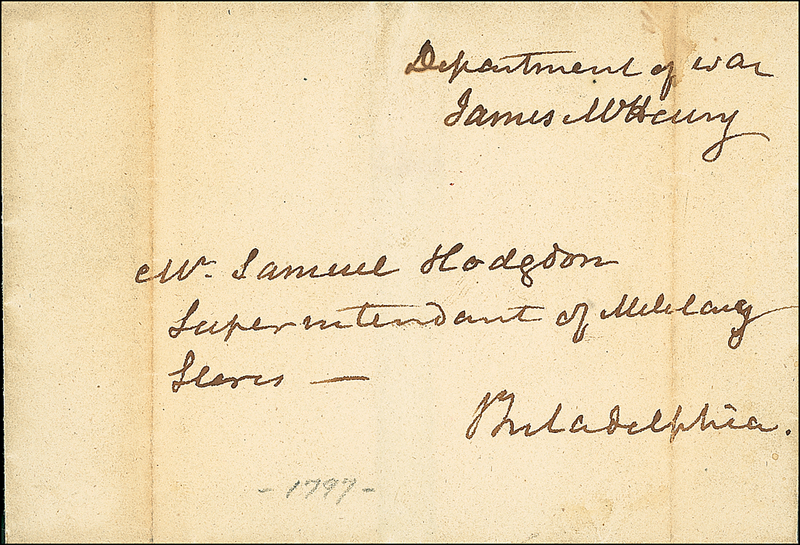 Department of war
James McHenry
Mr. Samuel Hodgdon
Superintendant of Military
Stores —
Philadelphia.
- 1797 -